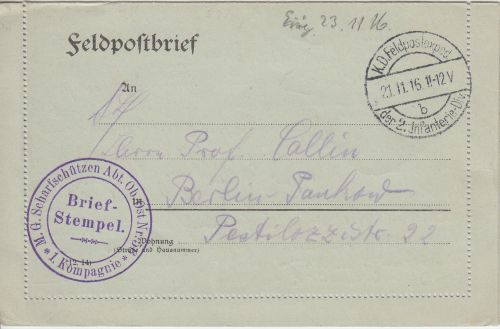 23. 11 16.
Feldpostbrief
K.D. Feldpostexped.
21.11.16. 11-12 V
b
der 2. Infanterie-Div.
An
Herrn Prof. Collin
Berlin-Pankow
Pestalozzistr. 22
Wohnung
(Straße und Hausnummer)
M.G. Scharfschützen Abt. Ob. Ost
Brief-
Stempel.
* 1. Kompagnie *